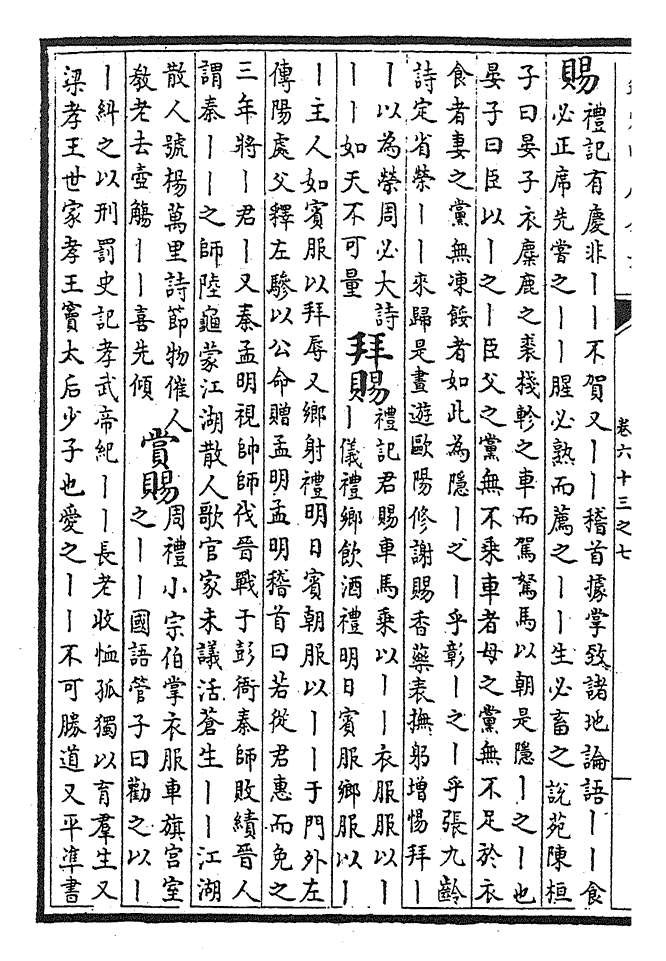 卷六十三之七
賜
禮記有慶非丨丨不賀又丨丨稽首據掌致諸地論語丨丨食
必正席先嘗之丨丨腥必熟而薦之丨丨生必畜之說苑陳桓
子曰晏子衣麋鹿之裘棧軫之車而駕駑馬以朝是隱丨之丨也
晏子曰臣以丨之丨臣父之黨無不乘車者母之黨無不足於衣
食者妻之黨無凍餒者如此為隱丨之丨乎彰丨之丨乎張九齡
詩定省榮丨丨來歸是晝遊歐陽修謝賜香藥表撫躬增惕拜丨
丨以為榮周必大詩
丨丨如天不可量
拜賜
禮記君賜車馬乘以丨丨衣服服以丨
丨儀禮鄉飲酒禮明日賓服鄉服以丨
丨主人如賓服以拜辱又鄉射禮明日賓朝服以丨丨于門外左
傳陽處父釋左驂以公命贈孟明孟明稽首曰若從君惠而免之
三年將丨君丨又秦孟明視帥師伐晉戰于彭衙秦師敗績晉人
謂秦丨丨之師陸龜蒙江湖散人歌官家未議活蒼生丨丨江湖
散人號楊萬里詩節物催人
教老去壺觴丨丨喜先傾
賞賜
周禮小宗伯掌衣服車旗宮室
之丨丨國語管子曰勸之以丨
丨糾之以刑罰史記孝武帝紀丨丨長老收恤孤獨以育羣生又
梁孝王世家孝王竇太后少子也愛之丨丨不可勝道又平準書